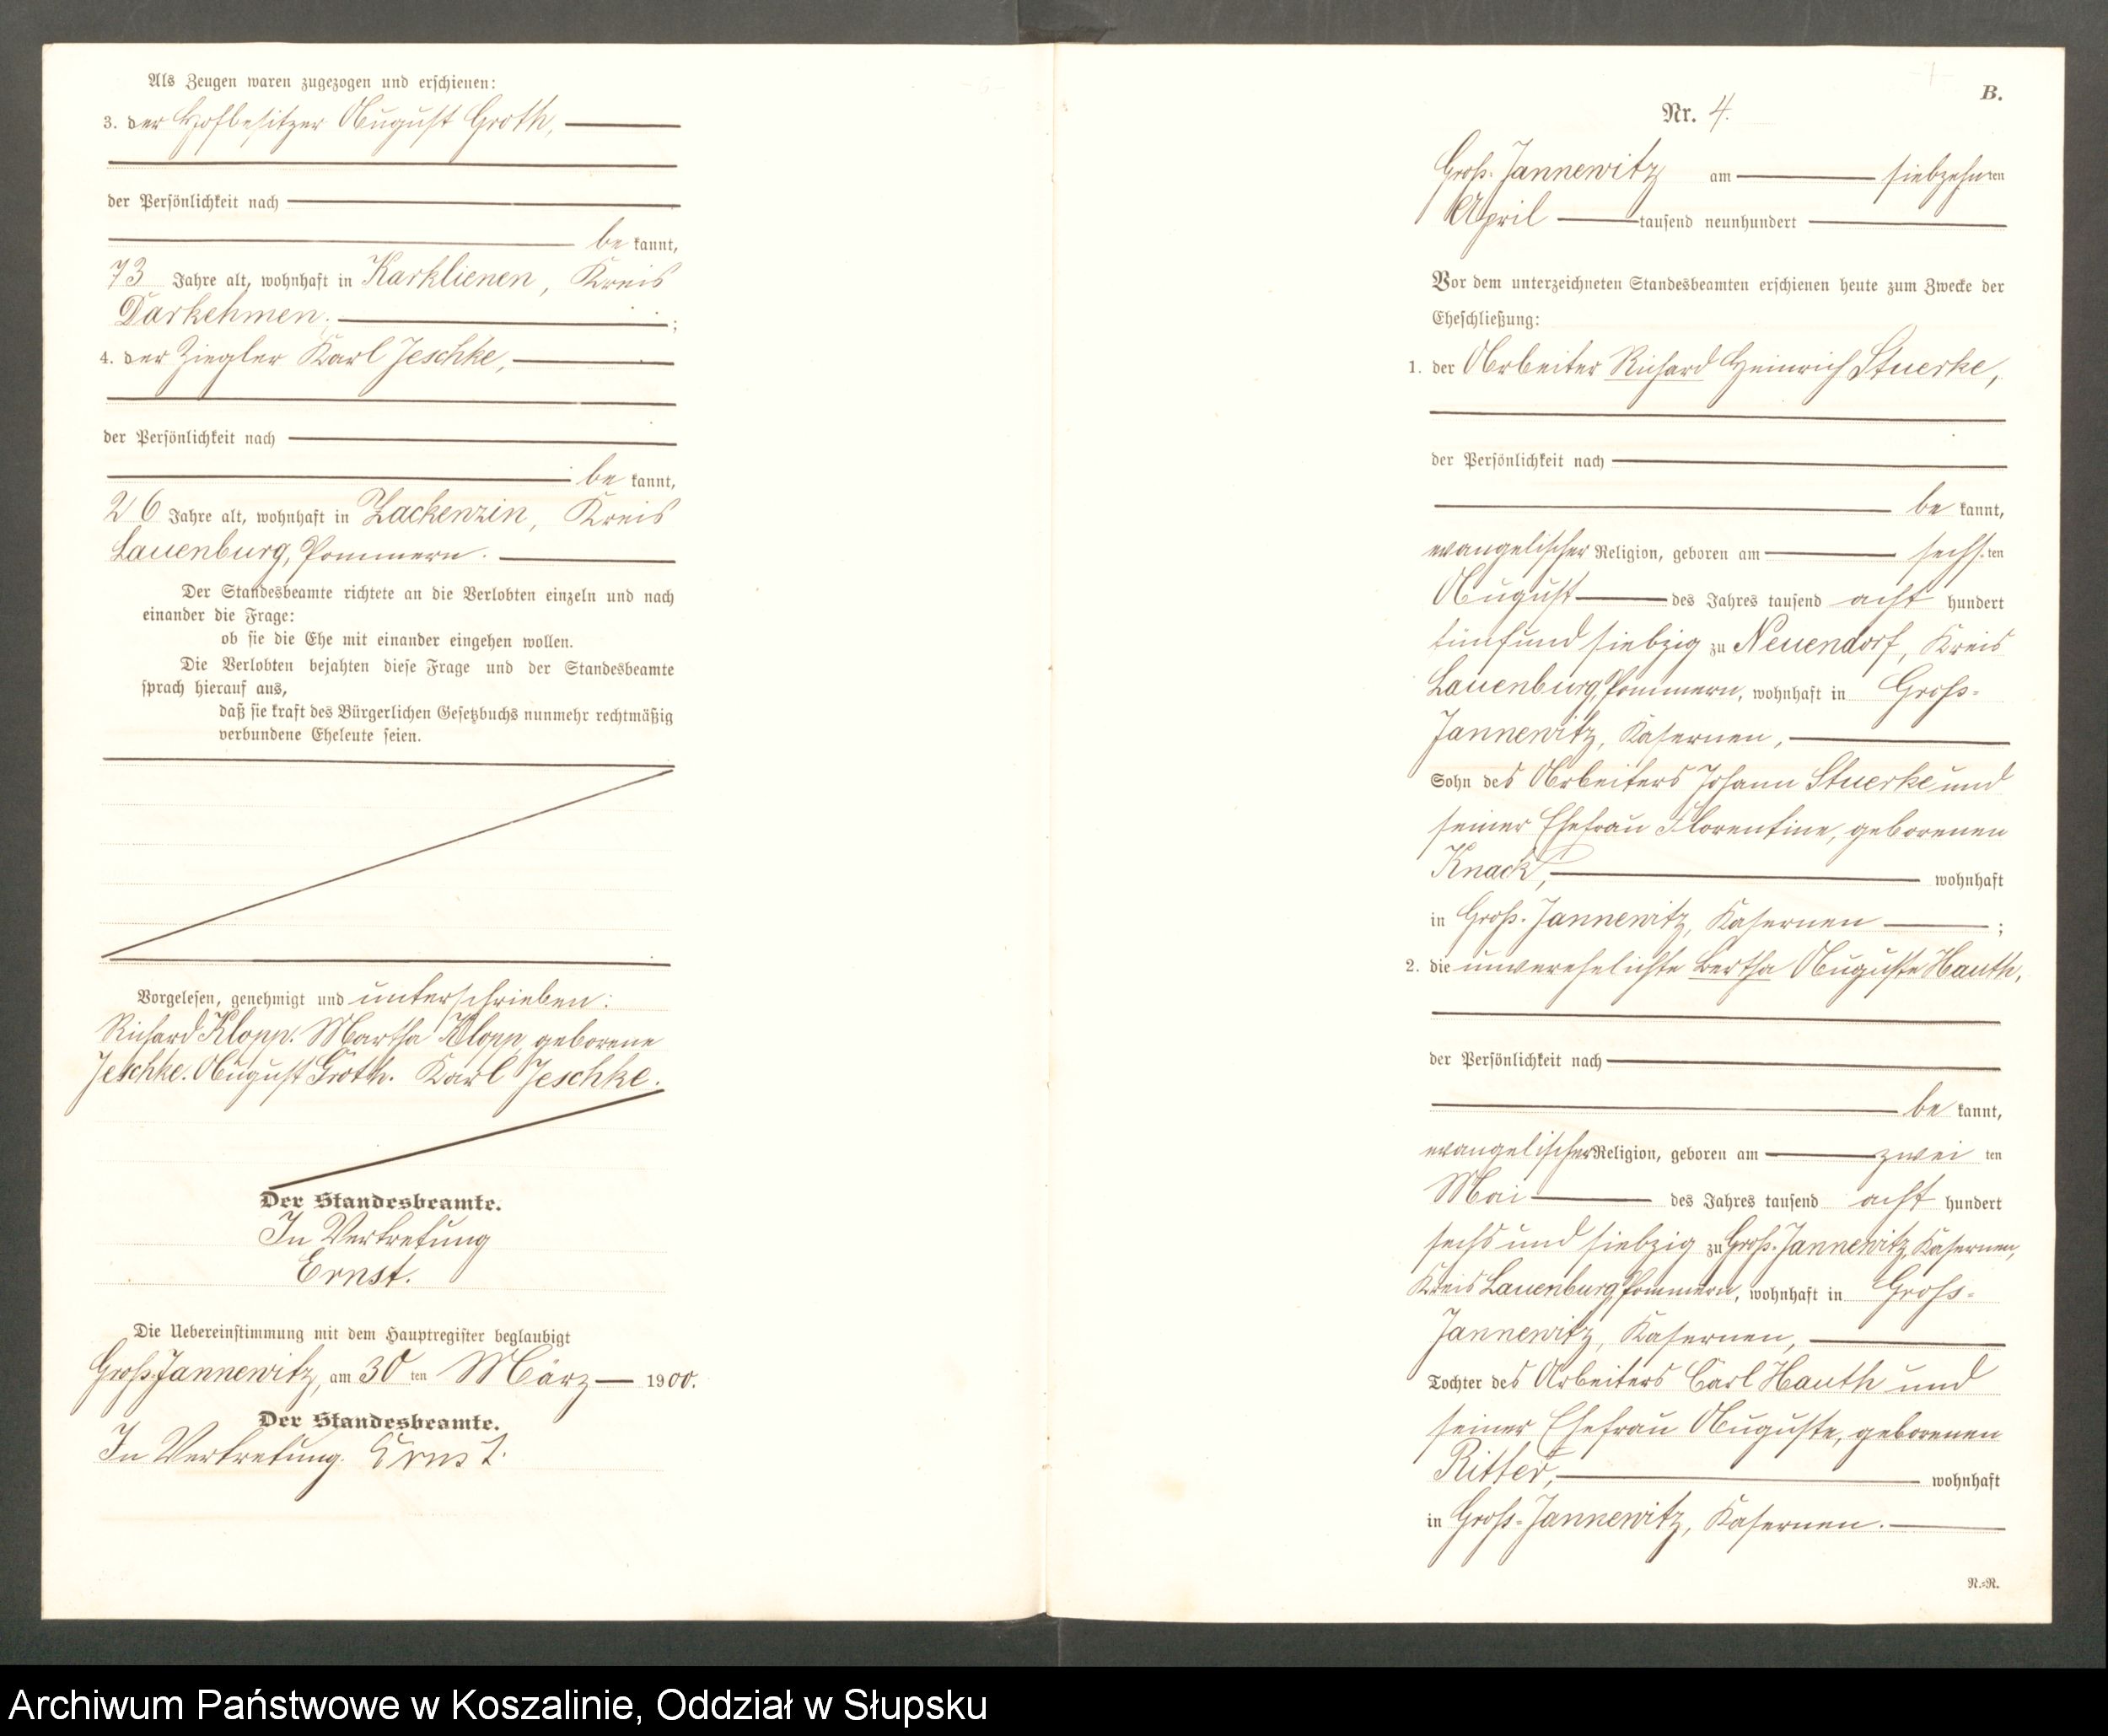 Als Zeugen waren zugezogen und erschienen:
3. der Hofbesitzer August Groth,
der Persönlichkeit nach
be kannt,
73 Jahre alt, wohnhaft in Karklienen, Kreis
Darkehmen. ;
4. der Ziegler Karl Jeschke,
der Persönlichkeit nach
be kannt,
26 Jahre alt, wohnhaft in Zackenzin, Kreis
Lauenburg, Pommern.
Der Standesbeamte richtete an die Verlobten einzeln und nach
einander die Frage:
ob sie die Ehe mit einander eingehen wollen.
Die Verlobten bejahten diese Frage und der Standesbeamte
sprach hierauf aus,
daß sie kraft des Bürgerlichen Gesetzbuchs nunmehr rechtmäßig
verbundene Eheleute seien.
Vorgelesen, genehmigt und unterschrieben:
Richard Klopp. Martha Klopp, geborene
Jeschke. August Groth. Karl Jeschke.
Der Standesbeamte.
In Vertretung
Ernst.
Die Uebereinstimmung mit dem Hauptregister beglaubigt
Groß-Jannewitz, am 30 ten März 1900.
Der Standesbeamte.
In Vertretung. Ernst.
B.
Nr. 4.
Groß-Jannewitz am siebzehn ten
April tausend neunhundert
Vor dem unterzeichneten Standesbeamten erschienen heute zum Zwecke der
Eheschließung:
1. der Arbeiter Richard Heinrich Stuerke,
der Persönlichkeit nach
be kannt,
evangelischer Religion, geboren am sechs ten
August des Jahres tausend acht hundert
fünfundsiebzig zu Neuendorf, Kreis
Lauenburg, Pommern, wohnhaft in Groß-
Jannewitz, Kasernen,
Sohn des Arbeiters Johann Stuerke und
seiner Ehefrau Florentine, geborenen
Knack, wohnhaft
in Groß-Jannewitz, Kasernen ;
2. die unverehelichte Bertha Auguste Hauth,
der Persönlichkeit nach
be kannt,
evangelischer Religion, geboren am zwei ten
Mai des Jahres tausend acht hundert
sechs und siebzig zu Groß-Jannewitz, Kasernen,
Kreis Lauenburg, Pommern, wohnhaft in Groß-
Jannewitz, Kasernen,
Tochter des Arbeiters Carl Hauth und
seiner Ehefrau Auguste, geborenen
Ritter, wohnhaft
in Groß-Jannewitz, Kasernen.
N.=R.
Archiwum Państwowe w Koszalinie, Oddział w Słupsku